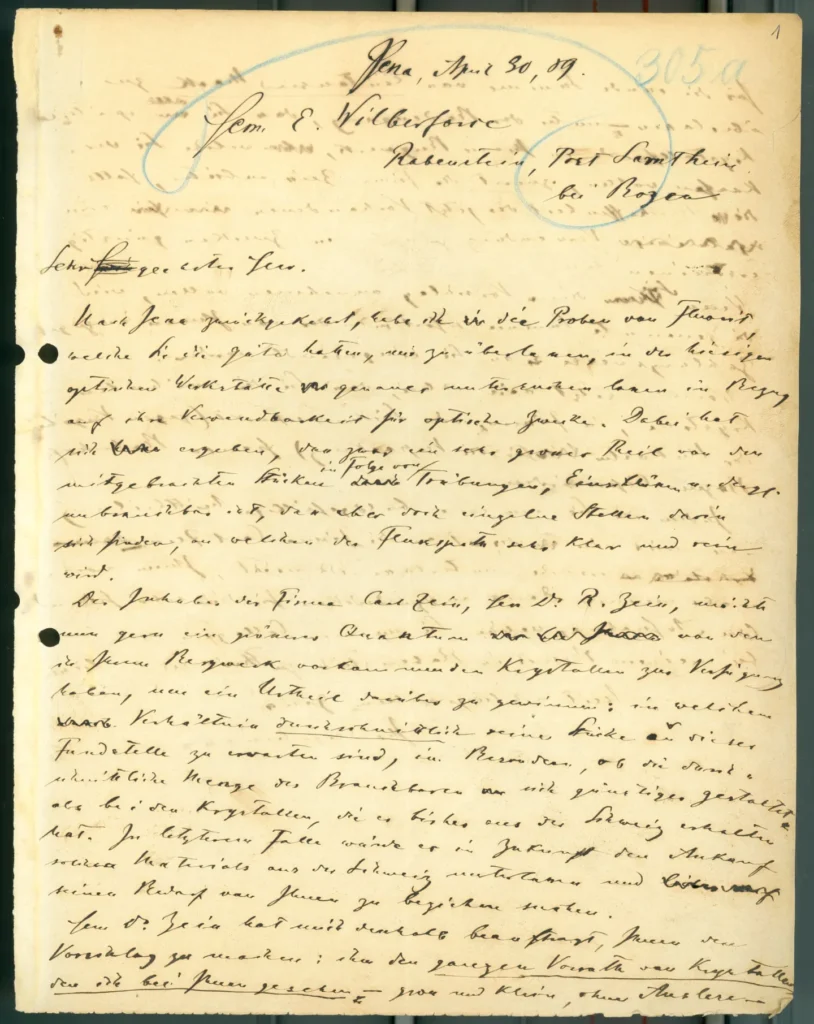 1
Jena, April 30, 89.
305a
Herrn E. Wilberforce
Rabenstein, Post Sarnthein
bei Bozen
Sehr geehrter Herr.
Nach Jena zurückgekehrt, habe ich die Proben von Fluorit,
welche Sie die Güte hatten, mir zu überlassen, in der hiesigen
optischen Werkstätte genauer untersuchen lassen in Bezug
auf ihre Verwendbarkeit für optische Zwecke. Dabei hat
sich ergeben, dass zwar ein sehr grosser Theil von den
mitgebrachten Stücken in Folge von Trübungen, Einschlüssen u. dergl.
unbrauchbar ist, dass aber doch einzelne Stellen darin
sich finden, an welchen der Flußspath sehr klar und rein
wird.
Der Inhaber der Firma Carl Zeiss, Herr Dr. R. Zeiss, möchte
nun gern ein grösseres Quantum von den
in Ihrem Bergwerk vorkommenden Krystallen zur Verfügung
haben, um ein Urtheil darüber zu gewinnen: in welchem
Verhältniss durchschnittlich reine Stücke an dieser
Fundstelle zu erwarten sind, im Besondern, ob die durch-
schnittliche Menge des Brauchbaren sich günstiger gestaltet
als bei den Krystallen, die er bisher aus der Schweiz erhalten
hat. Im letzteren Falle würde er in Zukunft den Ankauf
solchen Materials aus der Schweiz unterlassen und
seinen Bedarf von Ihnen zu beziehen suchen.
Herr Dr. Zeiss hat mich deshalb beauftragt, Ihnen den
Vorschlag zu machen: ihm den ganzen Vorrath von Krystallen
den ich bei Ihnen gesehen — gross und klein, ohne Auslese —